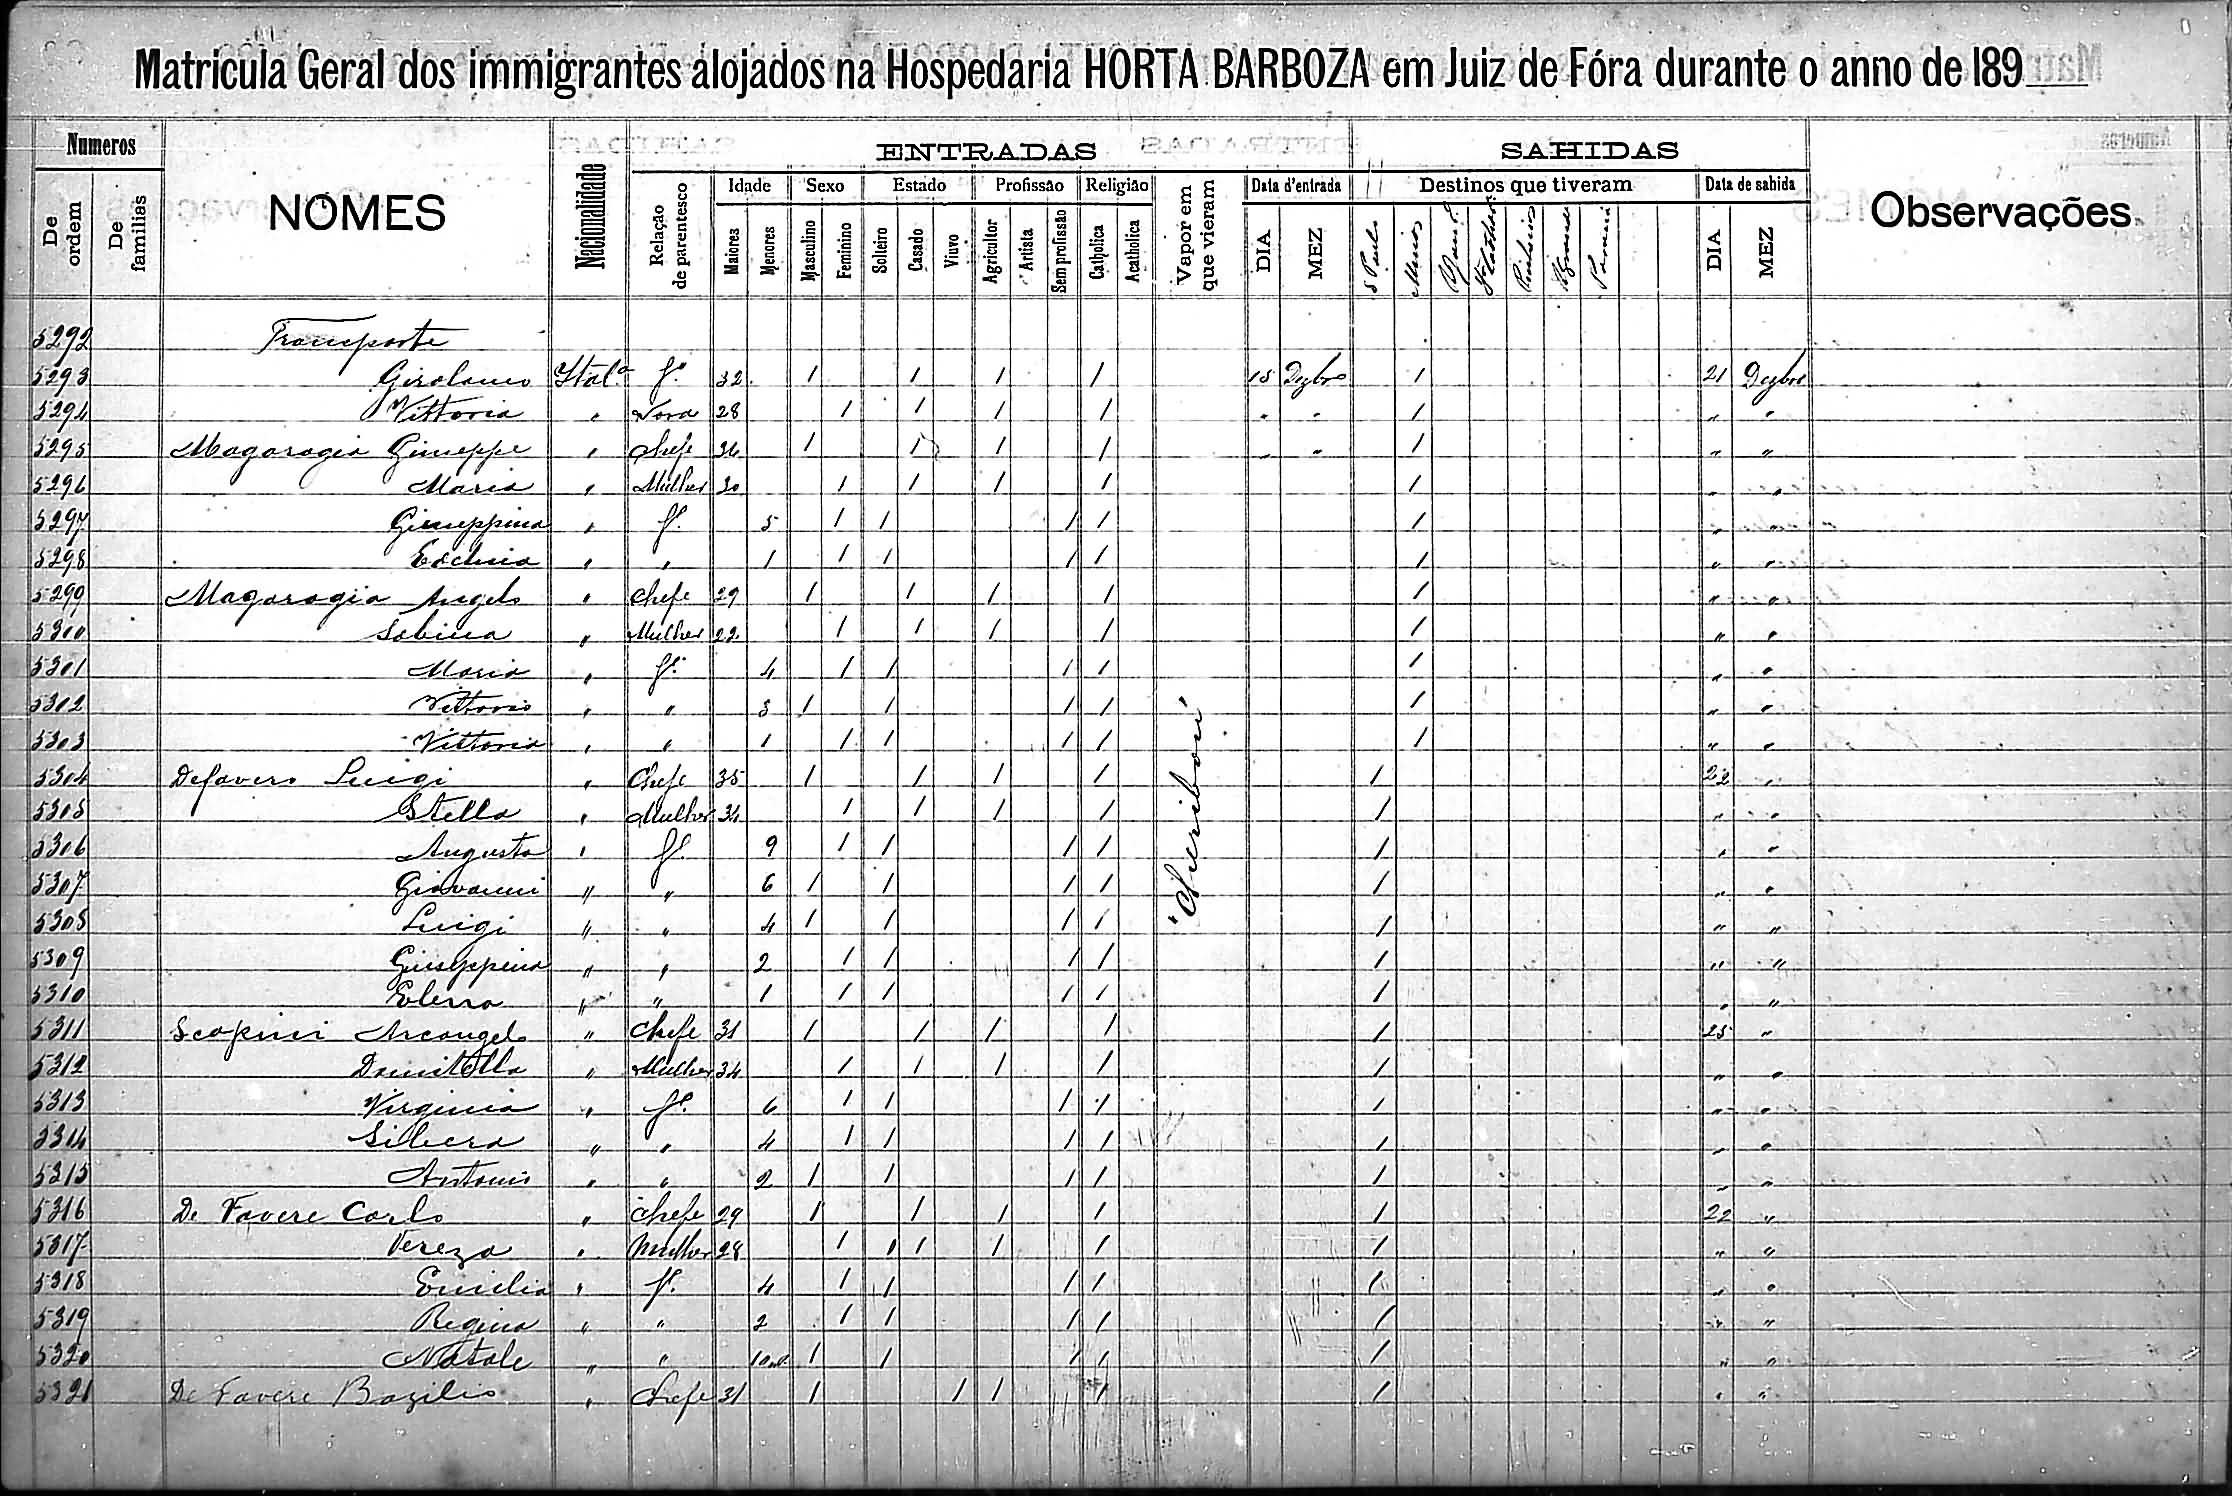 Matricula Geral dos immigrantes alojados na Hospedaria HORTA BARBOZA em Juiz de Fóra durante o anno de 189
Numeros ENTRADAS SAHIDAS
De ordem De familias NOMES Nacionalidade Relação de parentesco Idade Sexo Estado Profissão Religião Vapor em que vieram Data d'entrada Destinos que tiveram Data de sahida Observações
Maiores Menores Masculino Feminino Solteiro Casado Viuvo Agricultor Artista Sem profissão Catholica Acatholica DIA MEZ S Paulo Minas DIA MEZ
5292 Transporte
5293 Girolamo Ital.ª fº 32 1 1 1 1 15 Dezbro 1 21 Dezbro
5294 Vittoria " Nora 28 1 1 1 1 " " 1 " "
5295 Magaragia Giuseppe " Chefe 36 1 1 1 1 " " 1 " "
5296 Maria " Mulher 30 1 1 1 1 1 " "
5297 Giuseppina " fª 5 1 1 1 1 1 " "
5298 " " 1 1 1 1 1 1 " "
5299 Magaragia Angelo " Chefe 29 1 1 1 1 1 " "
5300 Sabina " Mulher 22 1 1 1 1 1 " "
5301 Maria " fª 4 1 1 1 1 1 " "
5302 Vittorio " " 3 1 1 1 1 1 " "
5303 Vittoria " " 1 1 1 1 1 1 " "
5304 Defavero Luigi " Chefe 35 1 1 1 1 1 22 "
5305 Stella " Mulher 34 1 1 1 1 1 " "
5306 Augusta " fª 9 1 1 1 1 1 " "
5307 Giovanni " " 6 1 1 1 1 1 " "
5308 Luigi " " 4 1 1 1 1 1 " "
5309 Giuseppina " " 2 1 1 1 1 1 " "
5310 " " 1 1 1 1 1 1 " "
5311 Scapini Arcangelo " Chefe 31 1 1 1 1 1 23 "
5312 Domitilla " Mulher 34 1 1 1 1 1 " "
5313 Virginia " fª 6 1 1 1 1 1 " "
5314 " " 4 1 1 1 1 1 " "
5315 Antonio " " 2 1 1 1 1 1 " "
5316 De Favere Carlo " Chefe 29 1 1 1 1 1 22 "
5317 Tereza " Mulher 28 1 1 1 1 1 " "
5318 Emilia " fª 4 1 1 1 1 1 " "
5319 Regina " " 2 1 1 1 1 1 " "
5320 Natale " " 1 1 1 1 1 " "
5321 De Favere Bazilio " Chefe 31 1 1 1 1 1 " "